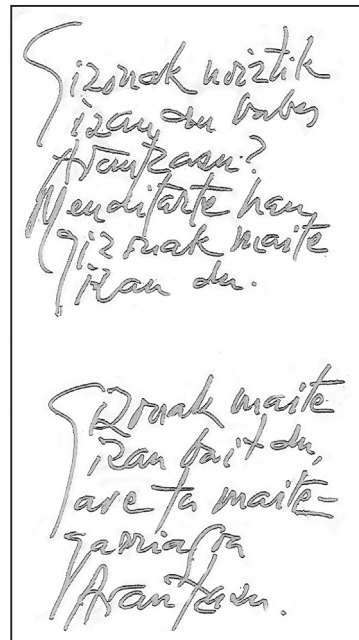 Gizonak noiztik
izan du babes
Arantzazu?
Menditarte hau
gizonak maite
izan du.
Gizonak maite
izan bait du,
ave ta maite-
garriagoa
Arantzazu.